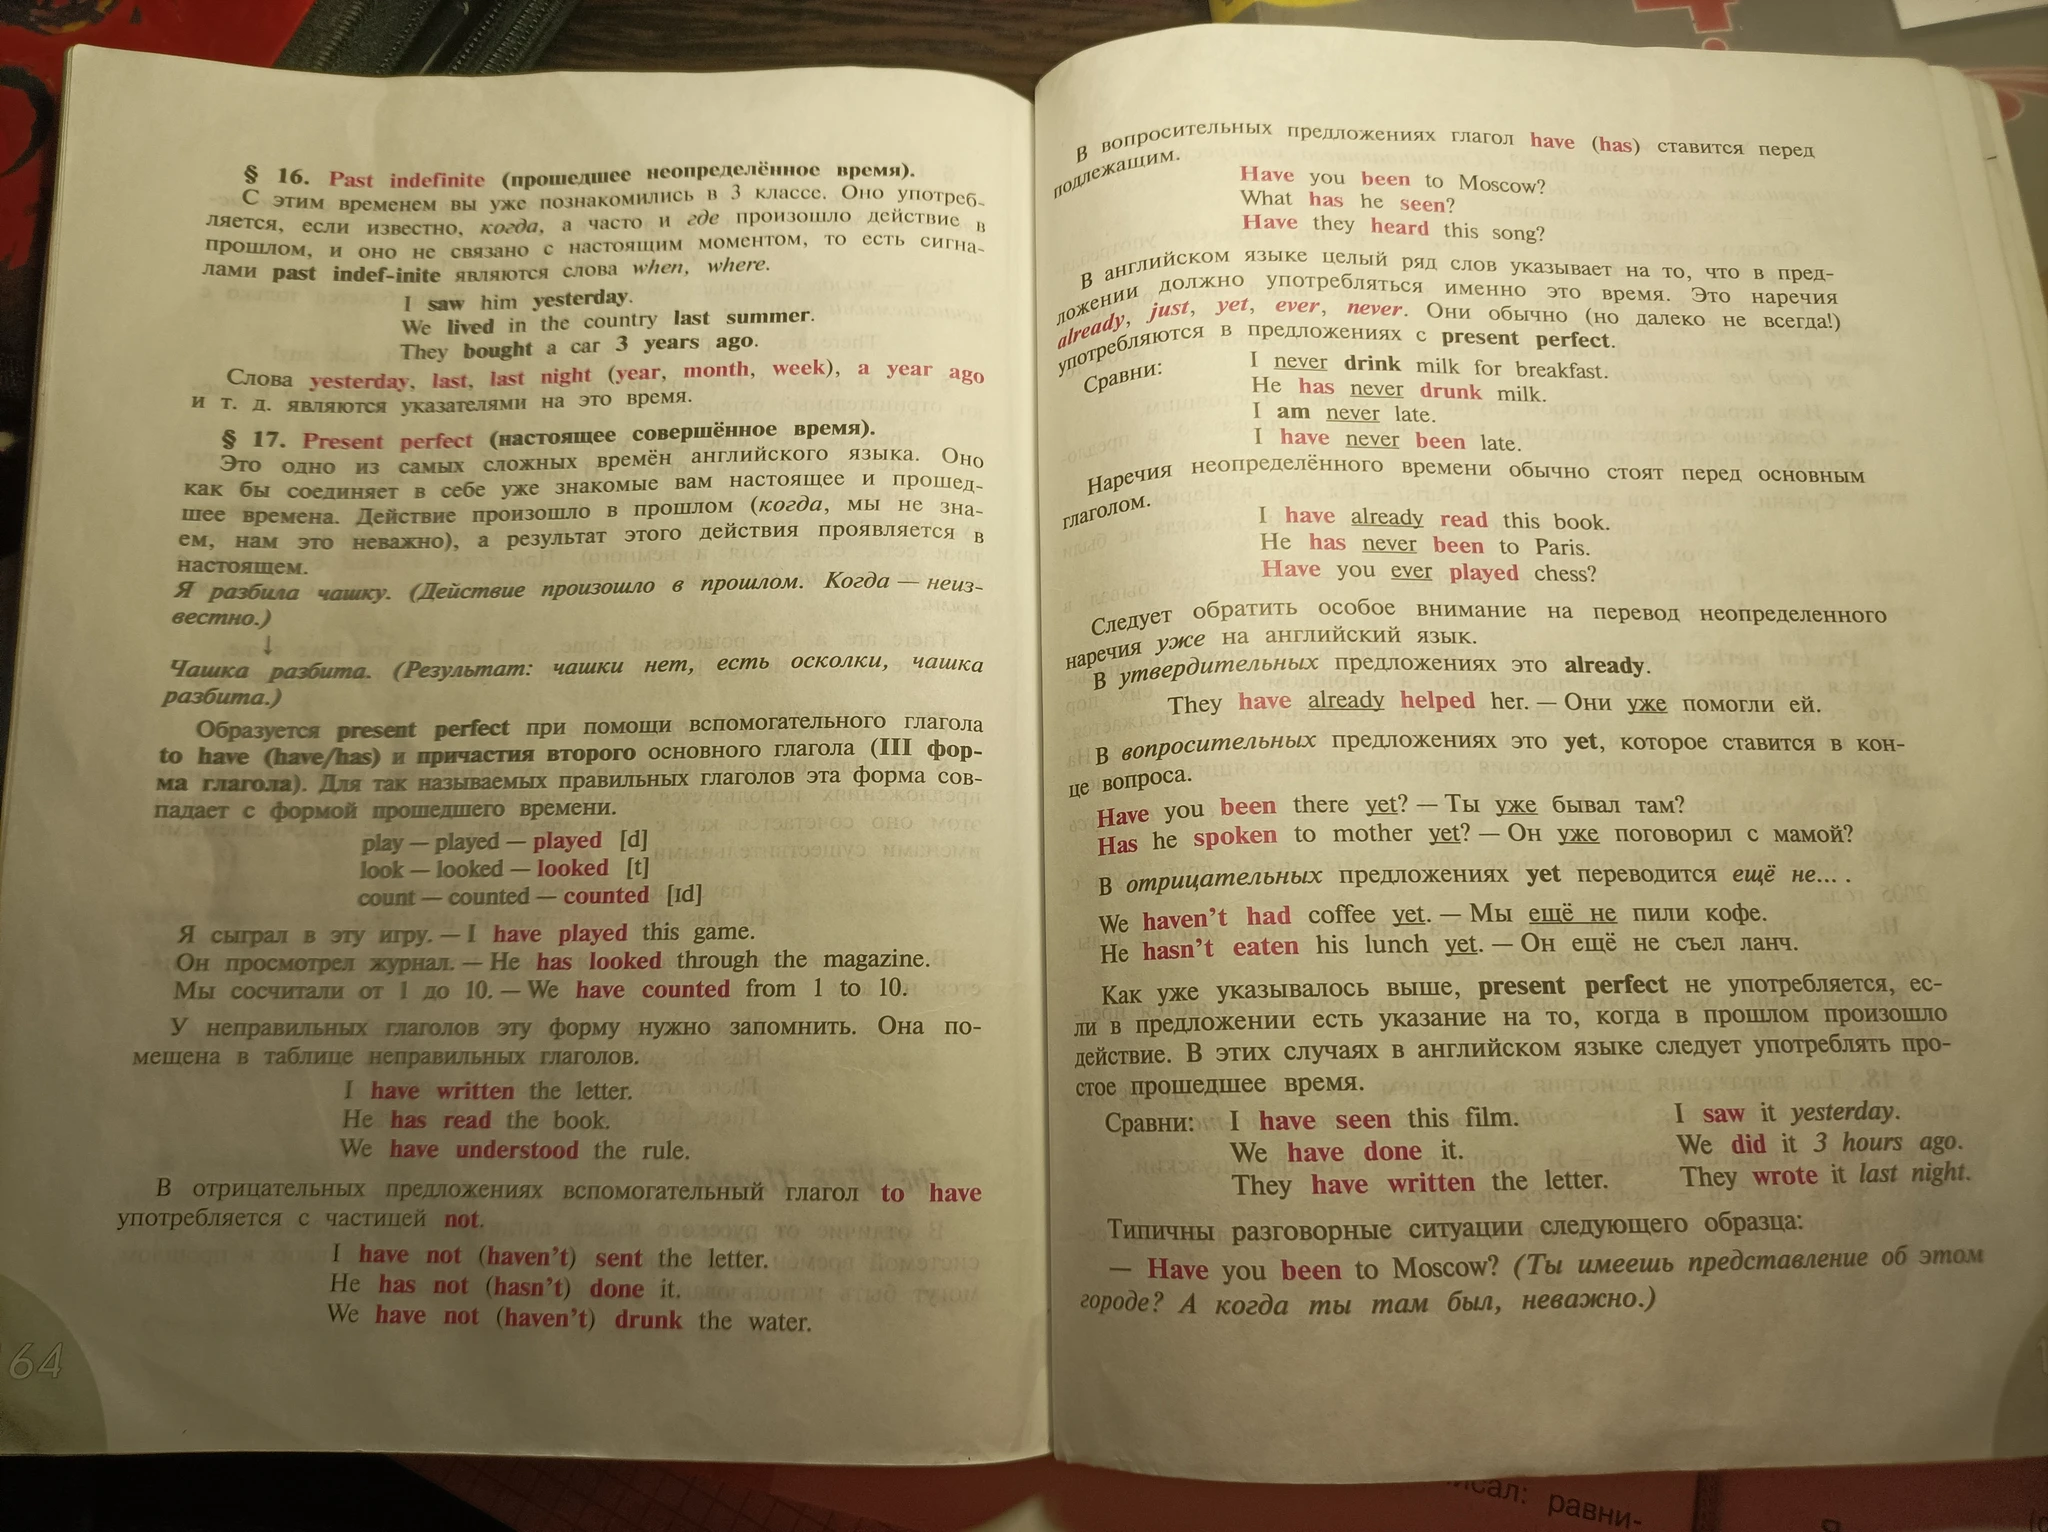 § 16. Past indefinite (прошедшее неопределённое время).
С этим временем вы уже познакомились в 3 классе. Оно употреб-
ляется, если известно, когда, а часто и где произошло действие в
прошлом, и оно не связано с настоящим моментом, то есть сигна-
лами past indef-inite являются слова when, where.
I saw him yesterday.
We lived in the country last summer.
They bought a car 3 years ago.
Слова yesterday, last, last night (year, month, week), a year ago
и т. д. являются указателями на это время.
§ 17. Present perfect (настоящее совершённое время).
Это одно из самых сложных времён английского языка. Оно
как бы соединяет в себе уже знакомые вам настоящее и прошед-
шее времена. Действие произошло в прошлом (когда, мы не зна-
ем, нам это неважно), а результат этого действия проявляется в
настоящем.
Я разбила чашку. (Действие произошло в прошлом. Когда — неиз-
вестно.)
↓
Чашка разбита. (Результат: чашки нет, есть осколки, чашка
разбита.)
Образуется present perfect при помощи вспомогательного глагола
to have (have/has) и причастия второго основного глагола (III фор-
ма глагола). Для так называемых правильных глаголов эта форма сов-
падает с формой прошедшего времени.
play — played — played [d]
look — looked — looked [t]
count — counted — counted [ɪd]
Я сыграл в эту игру. — I have played this game.
Он просмотрел журнал. — He has looked through the magazine.
Мы сосчитали от 1 до 10. — We have counted from 1 to 10.
У неправильных глаголов эту форму нужно запомнить. Она по-
мещена в таблице неправильных глаголов.
I have written the letter.
He has read the book.
We have understood the rule.
В отрицательных предложениях вспомогательный глагол to have
употребляется с частицей not.
I have not (haven't) sent the letter.
He has not (hasn't) done it.
We have not (haven't) drunk the water.
64
В вопросительных предложениях глагол have (has) ставится перед
подлежащим.
Have you been to Moscow?
What has he seen?
Have they heard this song?
В английском языке целый ряд слов указывает на то, что в пред-
ложении должно употребляться именно это время. Это наречия
already, just, yet, ever, never. Они обычно (но далеко не всегда!)
употребляются в предложениях с present perfect.
Сравни: I never drink milk for breakfast.
He has never drunk milk.
I am never late.
I have never been late.
Наречия неопределённого времени обычно стоят перед основным
глаголом.
I have already read this book.
He has never been to Paris.
Have you ever played chess?
Следует обратить особое внимание на перевод неопределенного
наречия уже на английский язык.
В утвердительных предложениях это already.
They have already helped her. — Они уже помогли ей.
В вопросительных предложениях это yet, которое ставится в кон-
це вопроса.
Have you been there yet? — Ты уже бывал там?
Has he spoken to mother yet? — Он уже поговорил с мамой?
В отрицательных предложениях yet переводится ещё не... .
We haven't had coffee yet. — Мы ещё не пили кофе.
He hasn't eaten his lunch yet. — Он ещё не съел ланч.
Как уже указывалось выше, present perfect не употребляется, ес-
ли в предложении есть указание на то, когда в прошлом произошло
действие. В этих случаях в английском языке следует употреблять про-
стое прошедшее время.
Сравни: I have seen this film. I saw it yesterday.
We have done it. We did it 3 hours ago.
They have written the letter. They wrote it last night.
Типичны разговорные ситуации следующего образца:
— Have you been to Moscow? (Ты имеешь представление об этом
городе? А когда ты там был, неважно.)
равни-